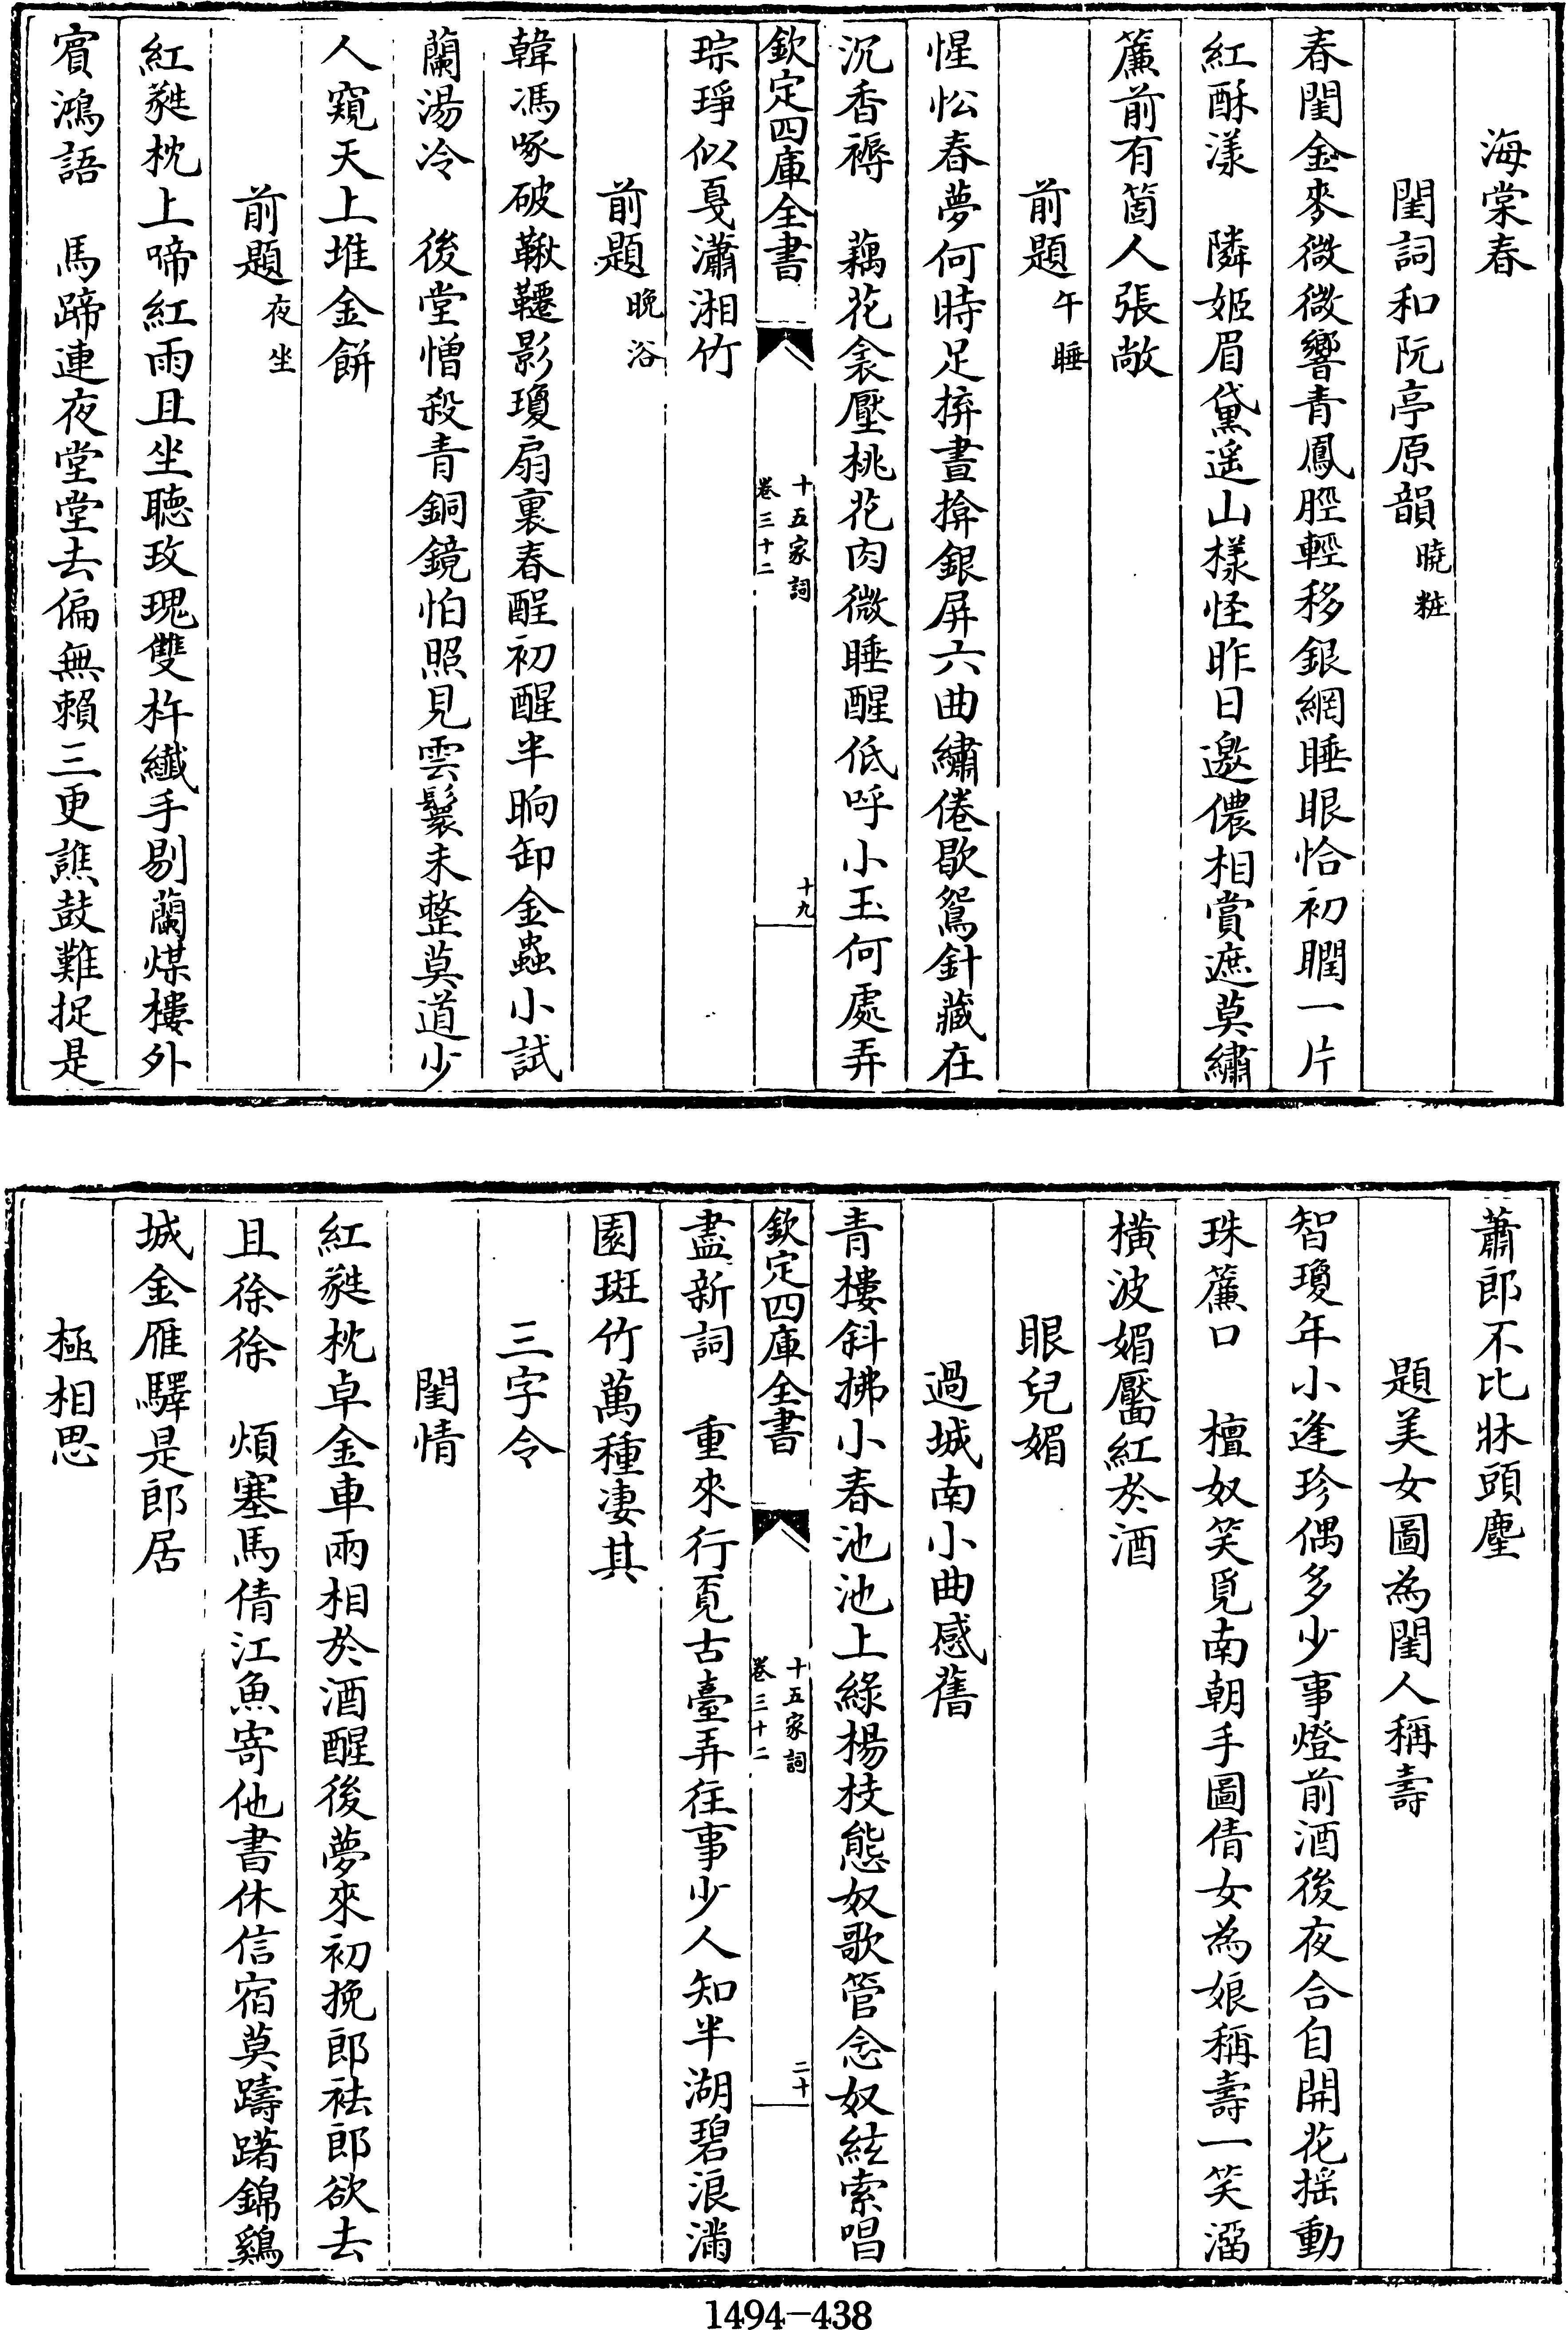 海棠春
閨詞和阮亭原韻曉粧
春閨金麥微微響青鳳脛輕移銀網睡眼恰初瞤一片
紅酥漾　隣姬眉黛遥山樣怪昨日邀儂相賞遮莫繡
簾前有箇人張敞
前題午睡
惺忪春夢何時足擠晝揜銀屏六曲繡倦歇鴛針藏在
沉香褥　藕花衾壓桃花肉微睡醒低呼小玉何處弄
琮琤似戛瀟湘竹
欽定四庫全書
十五家詞
卷三十二
十九
前題晚浴
韓馮啄破鞦韆影瓊扇裏春酲初醒半晌卸金蟲小試
蘭湯冷　後堂憎殺青銅鏡怕照見雲鬟未整莫道少
人窺天上堆金餅
前題夜坐
紅蕤枕上啼紅雨且坐聽玫瑰雙杵纖手剔蘭煤樓外
賔鴻語　馬蹄連夜堂堂去偏無賴三更譙鼓難捉是
蕭郎不比牀頭塵
題美女圖為閨人稱壽
智瓊年小逢珍偶多少事燈前酒後夜合自開花揺動
珠簾口　檀奴笑覓南朝手圖倩女為娘稱壽一笑溜
橫波媚靨紅於酒
眼兒媚
過城南小曲感舊
青樓斜拂小春池池上綠楊枝態奴歌管念奴絃索唱
欽定四庫全書
十五家詞
卷三十二
二十
盡新詞　重來行覔古臺弄往事少人知半湖碧浪滿
園斑竹萬種凄其
三字令
閨情
紅蕤枕卓金車兩相於酒醒後夢來初挽郎袪郎欲去
且徐徐　煩塞馬倩江魚寄他書休信宿莫躊躇錦鷄
城金雁驛是郎居
極相思
1494-438